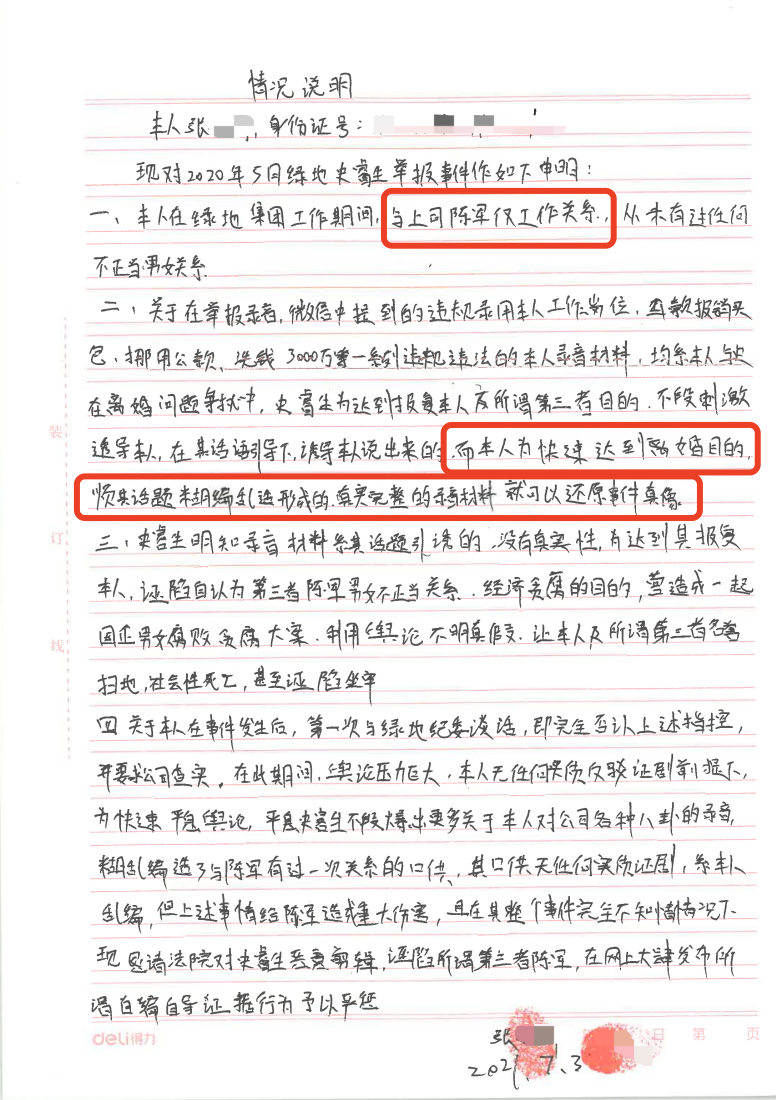 情况说明
本人张 , 身份证号:
现对2020年5月绿地史睿生举报事件作如下申明:
一、本人在绿地集团工作期间, 与上司陈军仅工作关系, 从未有过任何
不正当男女关系.
二、关于在举报录音,微信中提到的违规录用本人工作岗位、 报销买
包、挪用公款、洗钱3000万等一系列违规违法的本人录音材料,均系本人与史
在离婚问题争执中,史睿生为达到报复本人及所谓第三者目的.不段刺激
本人,在其话语引导下,诱导本人说出来的.而本人为快速达到离婚目的,
顺其话题胡编乱造形成的.真实完整的录音材料就可以还原事件真像.
三、史睿生明知录音材料系其话题引诱的,没有真实性,为达到其报复
本人,诬陷自认为第三者陈军男女不正当关系.经济贪腐的目的,营造成一起
国企男女腐败贪腐大案.利用舆论不明真假.让本人及所谓第三者名誉
扫地,社会性死亡,甚至诬陷坐牢
四 关于本人在事件发生后,第一次与绿地纪委谈话,即完全否认上述指控,
并要求公司查实。在此期间,舆论压力巨大,本人无任何实质反驳证剧前提下,
为快速平息舆论,平息史睿生不段爆出更多关于本人对公司各种八卦的录音,
糊乱编造了与陈军有过一次关系的口供、其口供无任何实质证剧,系本人
乱编,但上述事情给陈军造成重大伤害,且在其整个事件完全不知情情况下.
现恳请法院对史睿生恶意剪辑,诬陷所谓第三者陈军,在网上大肆发布所
谓自编自导证据行为予以严惩
张
2021.7.3
装
订
线
deli得力
日 第 页